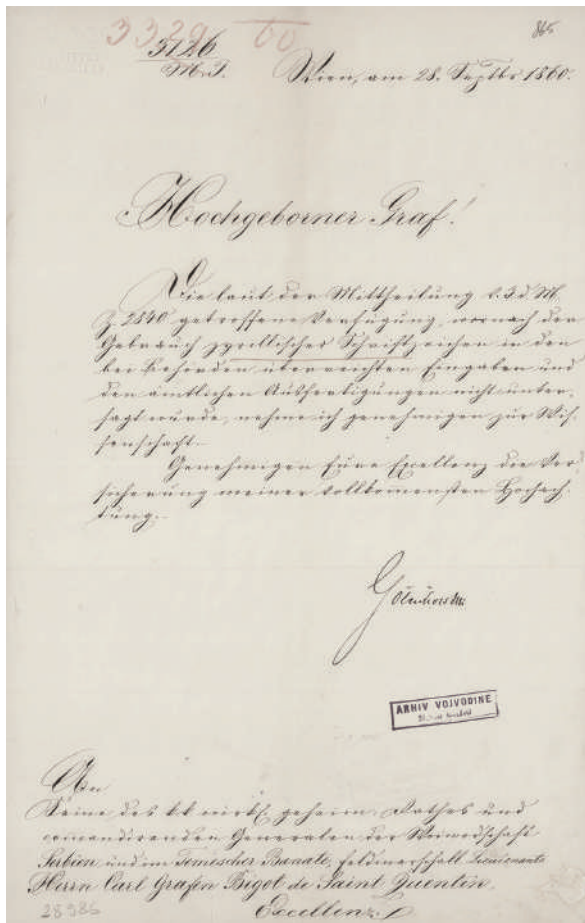 3329 60
865
5126
M.I.
Wien, am 28. Septbr 1860.
Hochgeborner Graf!
Die laut der Mittheilung v. 3. d. M.
Z. 2840 getroffene Verfügung, wornach der
Gebrauch zyrillischer Schriftzeichen in den
bei Behörden überreichten Eingaben und
den ämtlichen Ausfertigungen nicht unter-
sagt wurde, nehme ich genehmigend zur Wis-
senschaft.
Genehmigen Eure Excellenz die Ver-
sicherung meiner vollkommensten Hochach-
tung.
Gołuchowski
ARHIV VOJVODINE
An
Seine des kk wirkl. geheim. Rathes und
comandirenden Generalen der Woiwodschaft
Serbien und im Temescher Banate, Feldmarschall Lieutenants
Herrn Carl Grafen Bigot de Saint Quentin,
Excellenz.
28986